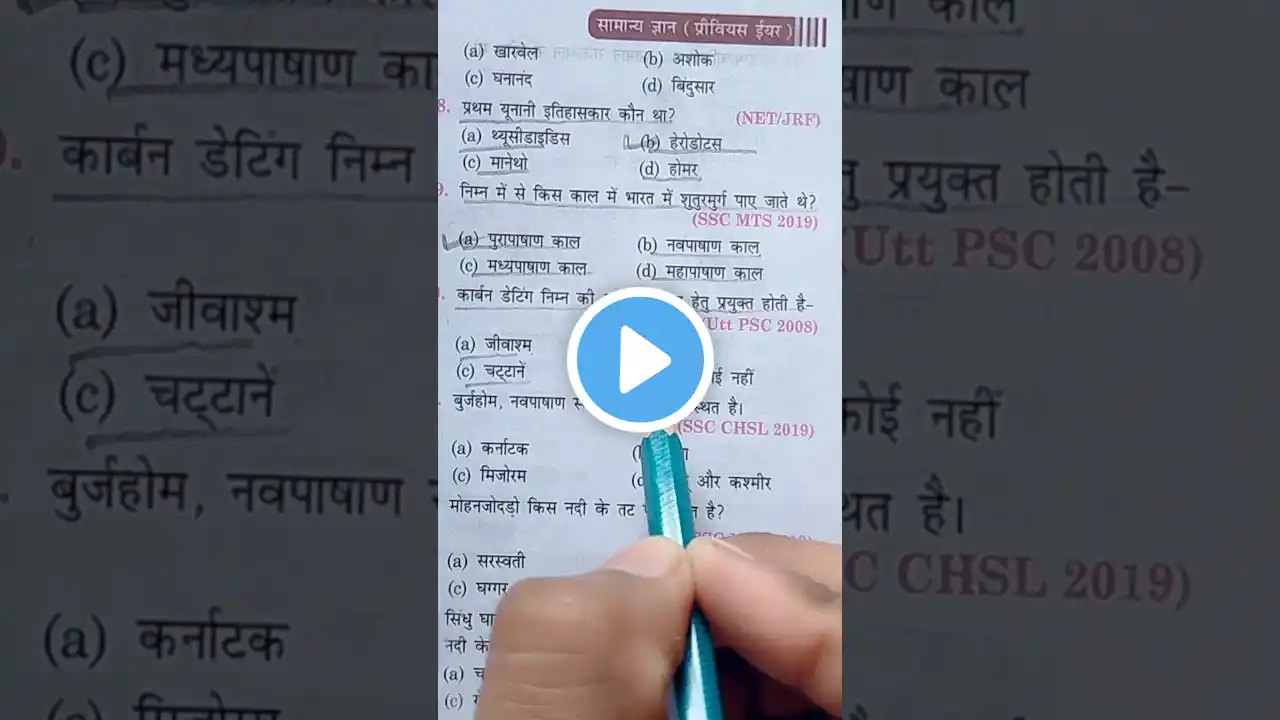 सामान्य ज्ञान ( प्रीवियस ईयर )
(a) खारवेल (b) अशोक
(c) घनानंद (d) बिंदुसार
8. प्रथम यूनानी इतिहासकार कौन था? (NET/JRF)
(a) थ्यूसीडाइडिस (b) हेरोडोटस
(c) मानेथो (d) होमर
9. निम्न में से किस काल में भारत में शुतुरमुर्ग पाए जाते थे?
(SSC MTS 2019)
(a) पुरापाषाण काल (b) नवपाषाण काल
(c) मध्यपाषाण काल (d) महापाषाण काल
कार्बन डेटिंग निम्न की हेतु प्रयुक्त होती है–
(Utt PSC 2008)
(a) जीवाश्म
(c) चट्टानें नहीं
बुर्जहोम, नवपाषाण है।
(SSC CHSL 2019)
(a) कर्नाटक
(c) मिजोरम और कश्मीर
मोहनजोदड़ो किस नदी के तट है?
(a) सरस्वती
(c) घग्गर
सिंधु
नदी के
(a)
(c)